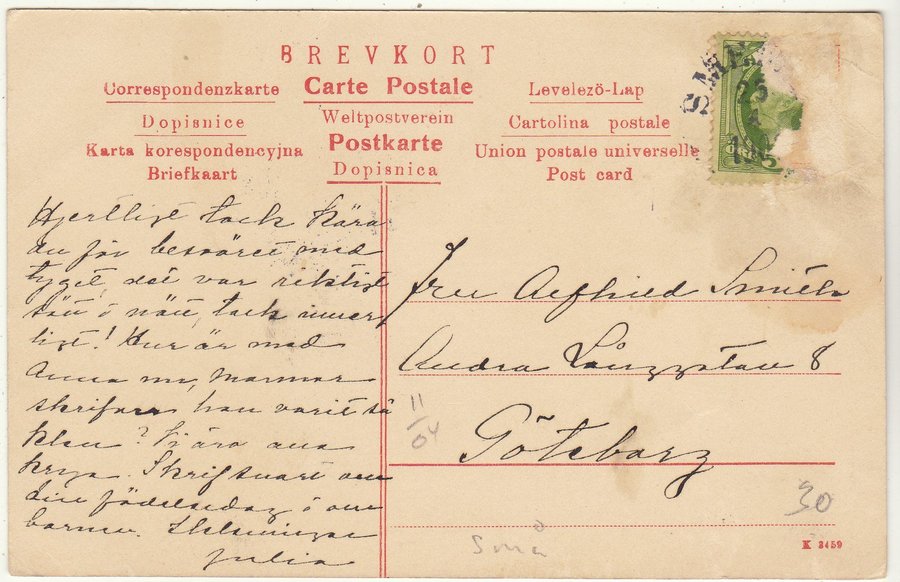 BREVKORT
Correspondenzkarte
Carte Postale
Levelezö-Lap
Dopisnice
Weltpostverein
Cartolina postale
Karta korespondencyjna
Postkarte
Union postale universelle
Briefkaart
Dopisnica
Post card
Hjertligt tack kära
du för besväret med
tyget, det var riktigt
sött o nätt, tack inner
ligt! Hur är med
Anna nu, Mamma
skrifver hon varit så
klen? Vi äro ana
krya. Skrif snart om
din födelsedag o om
barnen. Helsningar
Julia
Fru Aefhild Smith
Andra Långgatan 8
Göteborg
11/04
30
Små
K 3459